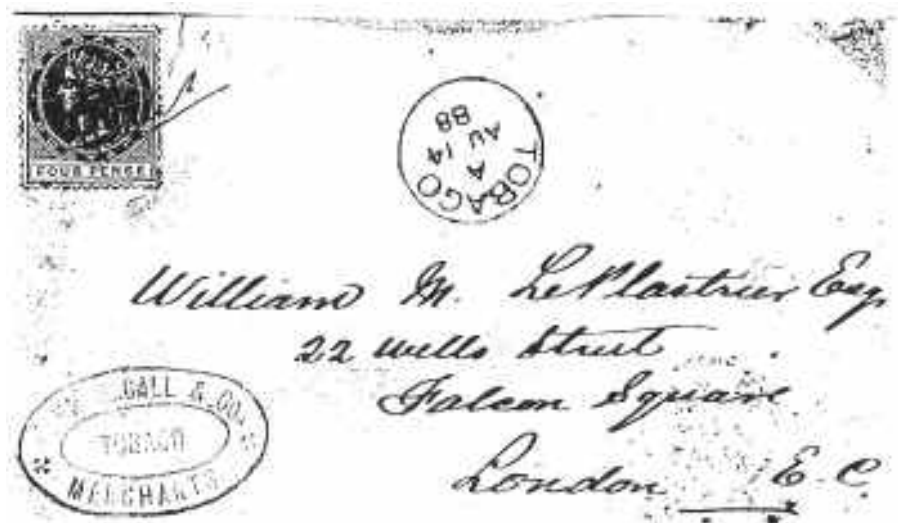 FOUR PENCE
TOBAGO
A
AU 14
88
William M. LePlastrier Esq
22 Wells Street
Falcon Square
London E.C
GALL & CO.
TOBAGO
MERCHANTS